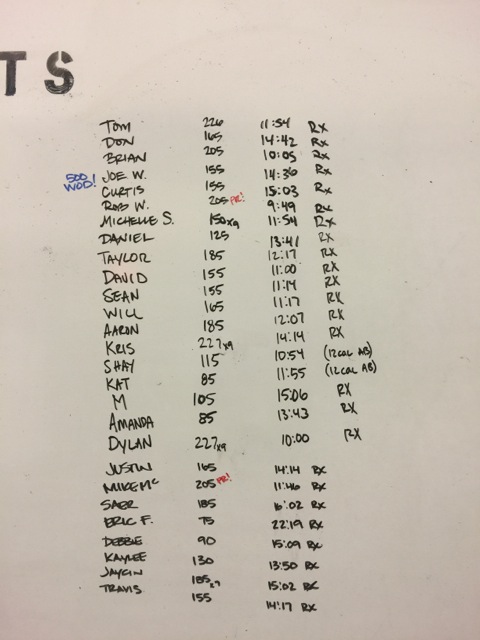 TS
TOM 226 11:54 RX
DON 165 14:42 RX
BRIAN 205 10:05 RX
500 WOD! JOE W. 155 14:36 RX
CURTIS 155 15:03 RX
ROB W. 205 PR! 9:49 RX
MICHELLE S. 150x9 11:54 RX
DANIEL 125 13:41 RX
TAYLOR 185 12:17 RX
DAVID 155 11:00 RX
SEAN 155 11:14 RX
WILL 165 11:17 RX
AARON 185 12:07 RX
KRIS 227x9 14:14 RX
SHAY 115 10:54 (12 CAL AB)
KAT 85 11:55 (12 CAL AB)
M 105 15:06 RX
AMANDA 85 13:43 RX
DYLAN 227x9 10:00 RX
JUSTIN 165 14:14 RX
MIKE Mc 205 PR! 11:46 RX
SAER 185 16:02 RX
ERIC F. 75 22:19 RX
DEBBIE 90 15:09 RX
KAYLEE 130 13:50 RX
JAYCIN 185 15:02 RX
TRAVIS 155 14:17 RX